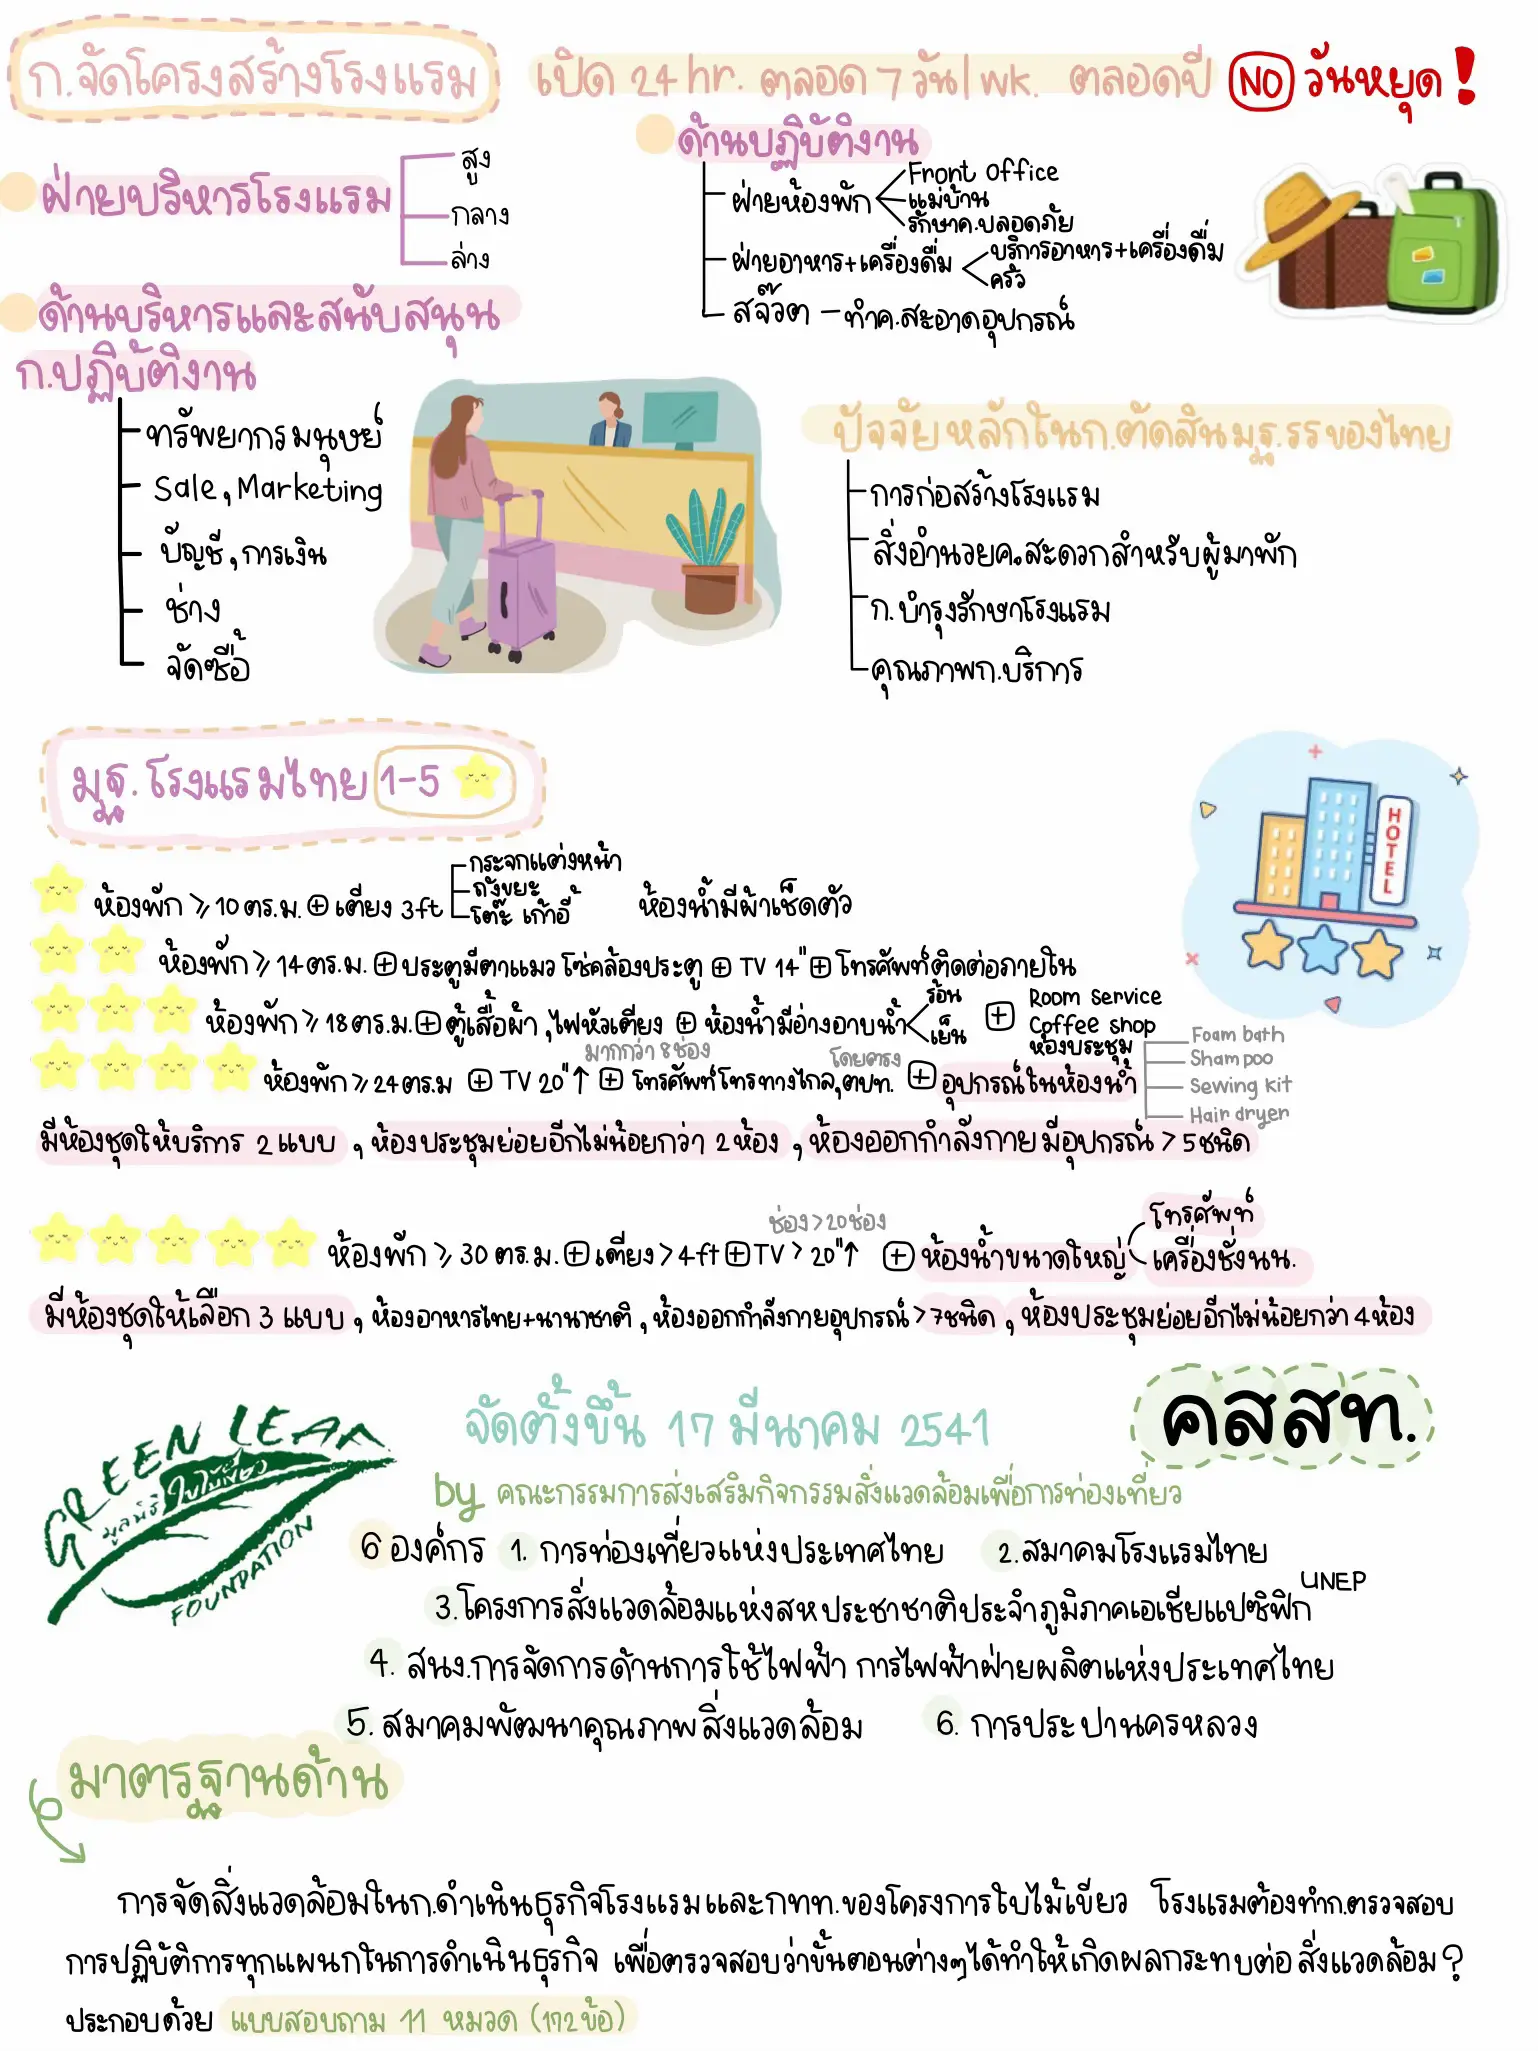 ก.จัดโครงสร้างโรงแรม
เปิด 24 hr. ตลอด 7 วัน/wk. ตลอดปี NO วันหยุด!
ฝ่ายบริหารโรงแรม
สูง
กลาง
ล่าง
ด้านบริหารและสนับสนุน
ก.ปฏิบัติงาน
ทรัพยากรมนุษย์
Sale, Marketing
บัญชี, การเงิน
ช่าง
จัดซื้อ
ด้านปฏิบัติงาน
ฝ่ายห้องพัก
Front Office
แม่บ้าน
รักษาค.ปลอดภัย
ฝ่ายอาหาร+เครื่องดื่ม
บริการอาหาร+เครื่องดื่ม
ครัว
สจ๊วต - ทำค.สะอาดอุปกรณ์
ปัจจัยหลักในก.ตัดสินมฐ.รรของไทย
การก่อสร้างโรงแรม
สิ่งอำนวยค.สะดวกสำหรับผู้มาพัก
ก.บำรุงรักษาโรงแรม
คุณภาพก.บริการ
มฐ.โรงแรมไทย 1-5
HOTEL
ห้องพัก ≥ 10 ตร.ม. + เตียง 3ft
กระจกแต่งหน้า
ถังขยะ
โต๊ะ เก้าอี้
ห้องน้ำมีผ้าเช็ดตัว
ห้องพัก ≥ 14 ตร.ม. + ประตูมีตาแมว โซ่คล้องประตู + TV 14" + โทรศัพท์ติดต่อภายใน
ห้องพัก ≥ 18 ตร.ม. + ตู้เสื้อผ้า, ไฟหัวเตียง + ห้องน้ำมีอ่างอาบน้ำ
ร้อน
เย็น
+ Room Service
Coffee shop
ห้องประชุม
มากกว่า 8 ช่อง
โดยตรง
ห้องพัก ≥ 24 ตร.ม + TV 20"↑ + โทรศัพท์โทรทางไกล, ตปท. + อุปกรณ์ในห้องน้ำ
Foam bath
Shampoo
Sewing kit
Hair dryer
มีห้องชุดให้บริการ 2 แบบ, ห้องประชุมย่อยอีกไม่น้อยกว่า 2 ห้อง, ห้องออกกำลังกายมีอุปกรณ์ > 5 ชนิด
ช่อง > 20 ช่อง
ห้องพัก ≥ 30 ตร.ม. + เตียง > 4ft + TV > 20"↑ + ห้องน้ำขนาดใหญ่
โทรศัพท์
เครื่องชั่งนน.
มีห้องชุดให้เลือก 3 แบบ, ห้องอาหารไทย+นานาชาติ, ห้องออกกำลังกายอุปกรณ์ > 7 ชนิด, ห้องประชุมย่อยอีกไม่น้อยกว่า 4 ห้อง
GREEN LEAF
มูลนิธิ ใบไม้เขียว
FOUNDATION
จัดตั้งขึ้น 17 มีนาคม 2541
คสสท.
by คณะกรรมการส่งเสริมกิจกรรมสิ่งแวดล้อมเพื่อการท่องเที่ยว
6 องค์กร 1. การท่องเที่ยวแห่งประเทศไทย 2. สมาคมโรงแรมไทย
3. โครงการสิ่งแวดล้อมแห่งสหประชาชาติประจำภูมิภาคเอเชียแปซิฟิก UNEP
4. สนง.การจัดการด้านการใช้ไฟฟ้า การไฟฟ้าฝ่ายผลิตแห่งประเทศไทย
5. สมาคมพัฒนาคุณภาพสิ่งแวดล้อม 6. การประปานครหลวง
มาตรฐานด้าน
การจัดสิ่งแวดล้อมในก.ดำเนินธุรกิจโรงแรมและกทท.ของโครงการใบไม้เขียว โรงแรมต้องทำก.ตรวจสอบ
การปฏิบัติการทุกแผนกในการดำเนินธุรกิจ เพื่อตรวจสอบว่าขั้นตอนต่างๆได้ทำให้เกิดผลกระทบต่อสิ่งแวดล้อม?
ประกอบด้วย แบบสอบถาม 11 หมวด (172 ข้อ)